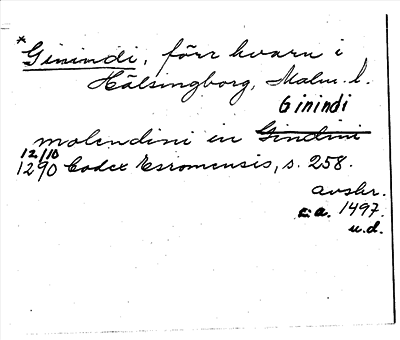 * Ginindi, förr kvarn i
Hälsingborg, Malm. l.
Ginindi
molendini in Gindini
12/10
1290 Codex Esromensis, s. 258.
avskr.
ca. 1497.
u.d.